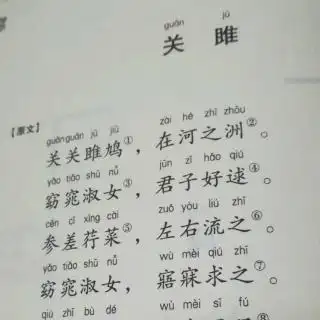 guān jū
关 雎
【原文】
guān guān jū jiū zài hé zhī zhōu
关关雎鸠①，在河之洲②。
yǎo tiǎo shū nǚ jūn zǐ hǎo qiú
窈窕淑女③，君子好逑④。
cēn cī xìng cài zuǒ yòu liú zhī
参差荇菜⑤，左右流之⑥。
yǎo tiǎo shū nǚ wù mèi qiú zhī
窈窕淑女，寤寐求之⑦。
qiú zhī bù dé wù mèi sī fú